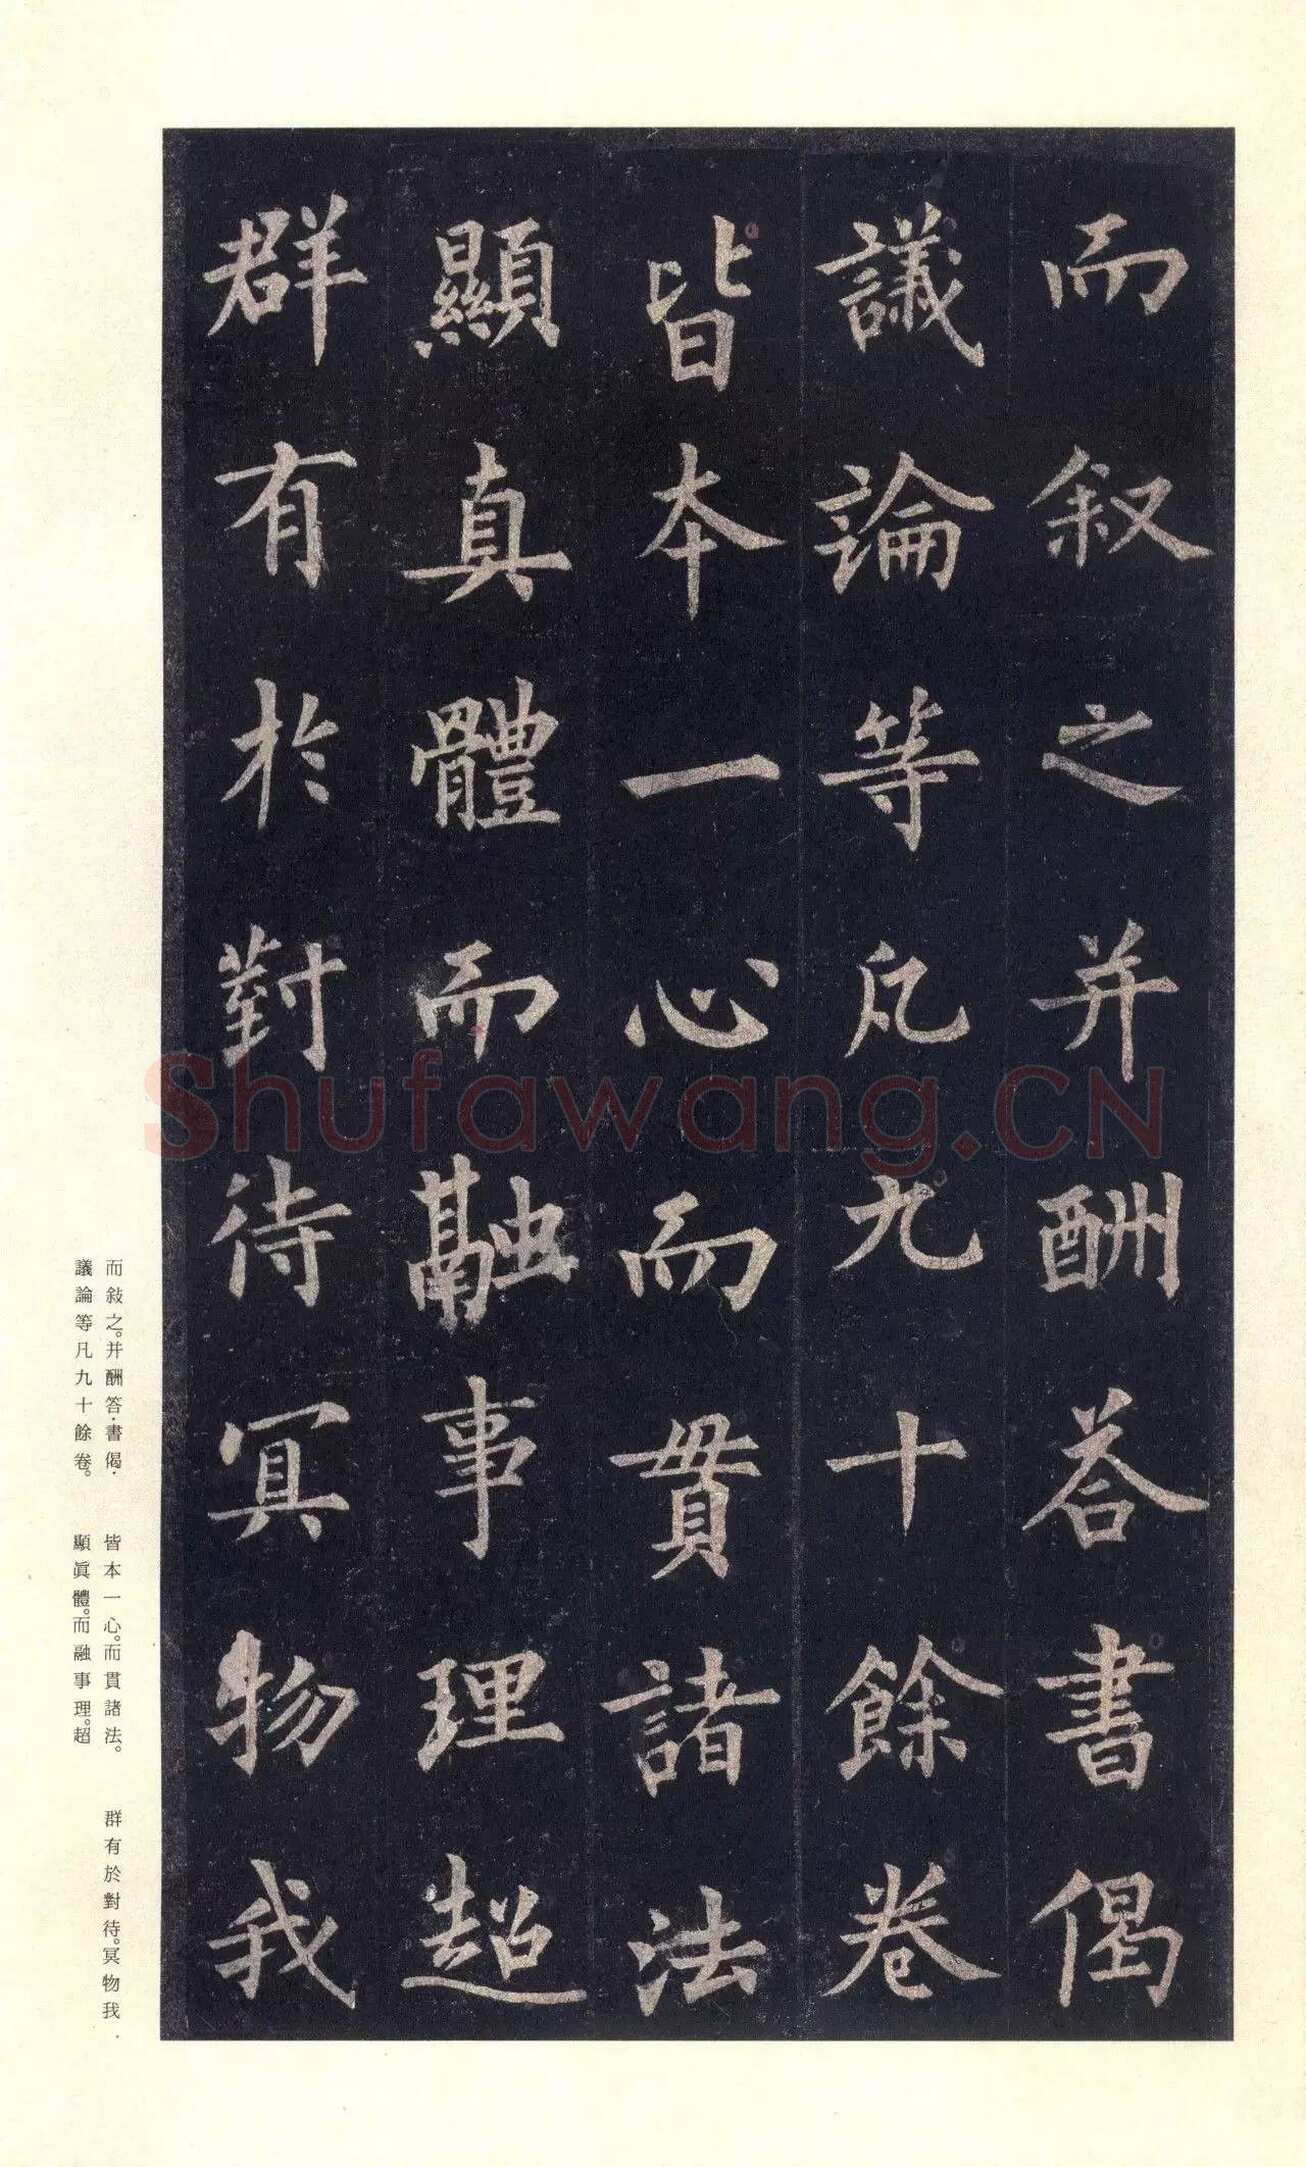 而敘之并酬答書偈
議論等凡九十餘卷
皆本一心而貫諸法
顯真體而融事理超
群有於對待冥物我
Shufawang.CN
而敍之。并酬答·書偈·
議論等凡九十餘卷。
皆本一心。而貫諸法。
顯眞體。而融事理。超
群有於對待。冥物我·